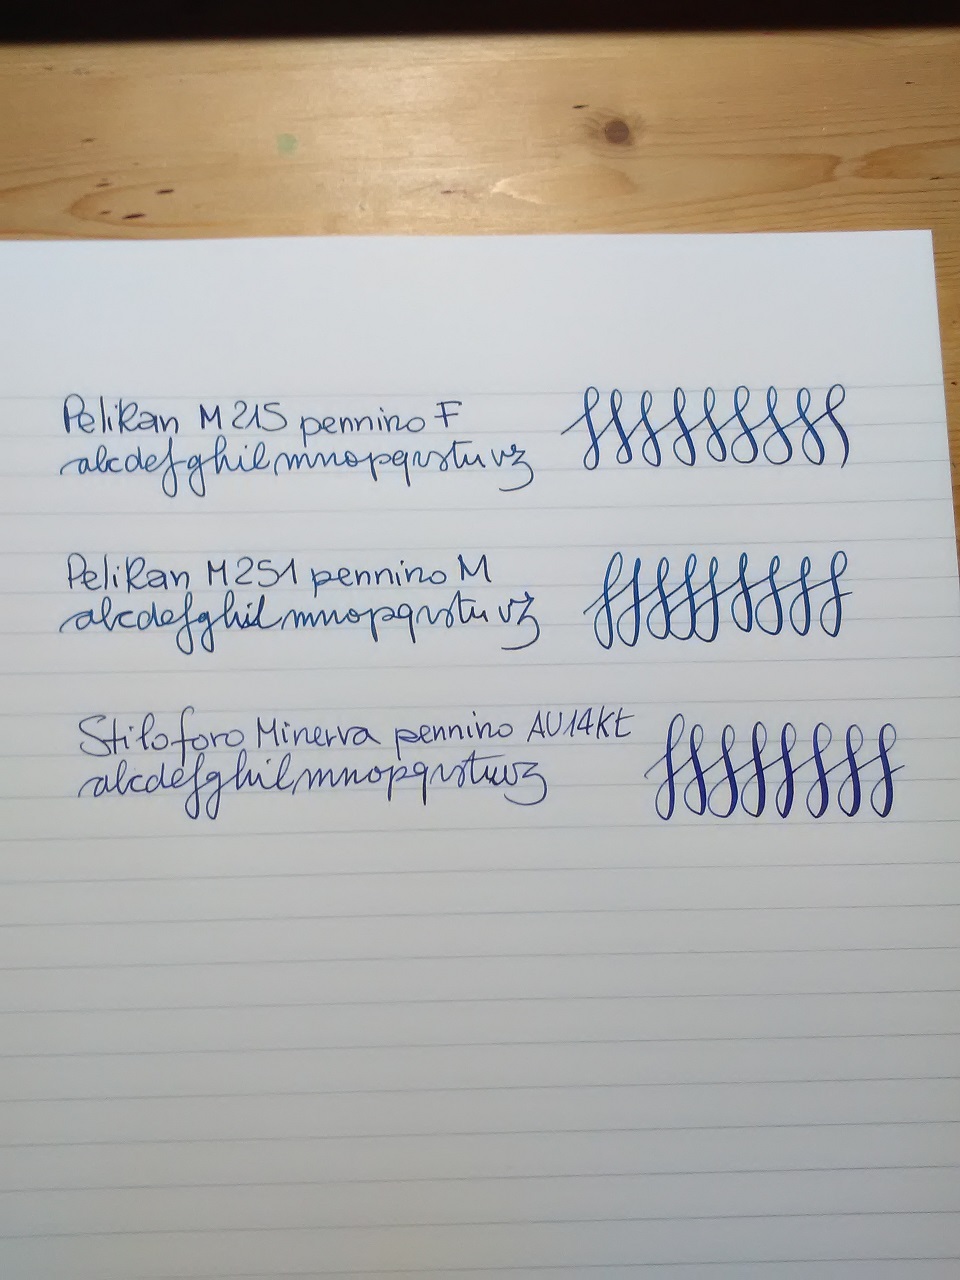 Pelikan M215 pennino F
abcdefghilmnopqrstuvz
Pelikan M251 pennino M
abcdefghilmnopqrstuvz
Stiloforo Minerva pennino AU14Kt
abcdefghilmnopqrstuvz